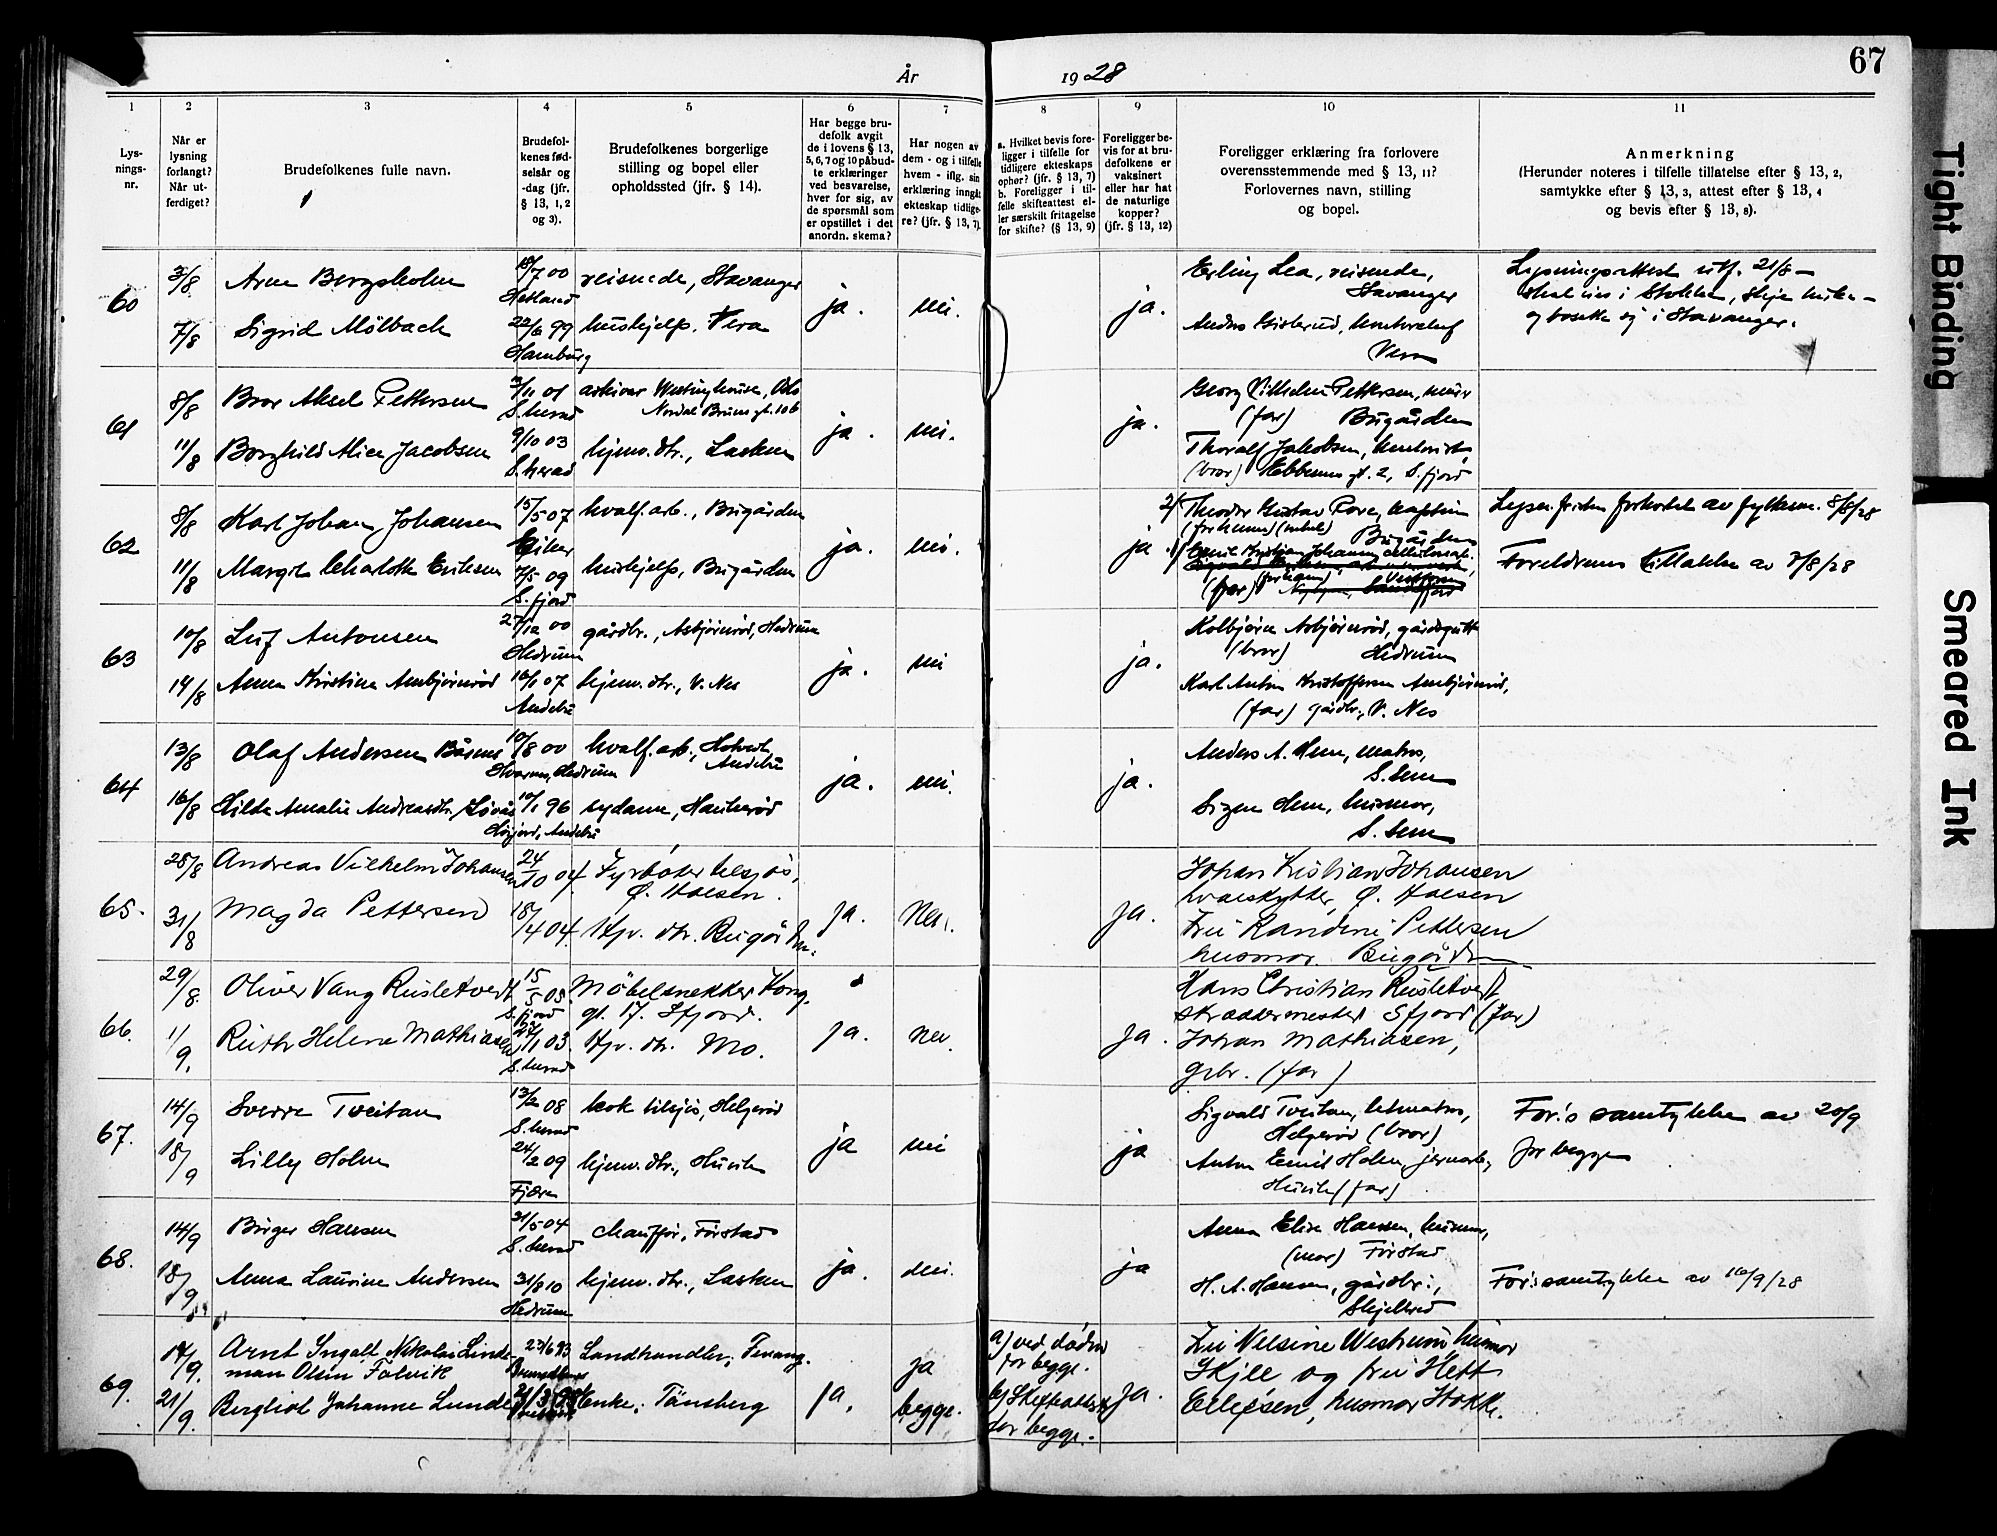 År 1928
67
1 2 3 4 5 6 7 8 9 10 11
Lys-
nings-
nr.
Når er
lysning
forlangt?
Når ut-
ferdiget?
Brudefolkenes fulle navn.
Brudefol-
kenes fød-
selsår og
-dag (jfr.
§ 13, 1, 2
og 3).
Brudefolkenes borgerlige
stilling og bopel eller
opholdssted (jfr. § 14).
Har begge bru-
defolk avgit
de i lovens § 13,
5, 6, 7 og 10 påbud-
te erklæringer
ved besvarelse,
hver for sig, av
de spørsmål som
er opstillet i det
anordn. skema?
Har nogen av
dem - og i tilfelle
hvem - iflg. sin
erklæring inngåt
ekteskap tidlige-
re? (jfr. § 13, 7).
a. Hvilket bevis fore-
ligger i tilfelle for
tidligere ekteskaps
ophør? (jfr. § 13, 7)
b. Foreligger i til-
felle skifteattest el-
ler særskilt fritagelse
for skifte? (§ 13, 9)
Foreligger be-
vis for at bru-
defolkene er
vaksinert
eller har hat
de naturlige
kopper?
(jfr. § 13, 12)
Foreligger erklæring fra forlovere
overensstemmende med § 13, 11?
Forlovernes navn, stilling
og bopel.
Anmerkning
(Herunder noteres i tilfelle tillatelse efter § 13, 2,
samtykke efter § 13, 3, attest efter § 13, 4
og bevis efter § 13, 8).
60
3/8
Arne Bergsholm
18/7 00
Hetland
reisende, Stavanger
7/8
Sigrid Mölbach
22/6 99
Hamburg
hushjelp, Vera
ja.
nei.
ja.
Erling Lea, reisende,
Stavanger
Anders Gislerud,
Vera
Lysningsattest utf. 21/8 –
i Stokke,
og bosette sig i Stavanger.
61
8/8
Bror Aksel Pettersen
3/11 01
S.herad
arkivar Westinghouse, Oslo
Nordal Bruns gt. 10b
11/8
Borghild Alice Jacobsen
9/10 03
S.herad
hjemv. dtr., Lasken
ja.
nei.
ja.
Georg Vilhelm Pettersen, murer
(far) Bugården
Thoralf Jakobsen,
(bror) gt. 2, S.fjord
62
8/8
Karl Johan Johansen
15/5 07
Eiker
hvalf. arb., Bugården
11/8
Margit Charlotte Eriksen
7/5 09
S.fjord
hushjelp, Bugården
ja.
nei.
ja.
2/ Theodor Gustav
Bugården
1/ Emil Kristian Johansen
(far)
Lysn.fristen forkortet av fylkesm. 8/8/28
Foreldrenes tillatelse av 7/8/28
63
10/8
Leif Antonsen
27/12 00
Hedrum
gårdbr., Asbjørnrød, Hedrum
14/8
Anna Kristine Anbjørnrød
16/1 07
Andebu
hjemv. dtr., V. Nes
ja.
nei
ja.
Kolbjørn Asbjørnrød, gårdsgutt
(bror) Hedrum
Karl Anton Kristoffersen Anbjørnrød,
(far) gårdbr., V. Nes
64
13/8
Olaf Andersen Båsmo
10/8 00
Hvarnes, Hedrum
hvalf. arb.,
Andebu
16/8
Hilda Amalie Andreasdtr.
10/1 96
Høyjord, Andebu
sydame, Haukerød
ja.
nei.
ja.
Anders A. Hem, matros,
S. Sem
Signe Hem, husmor,
S. Sem
65.
28/8
Andreas Vilhelm Johansen
24/10 04
Fyrbøter tilsjøs,
Ø. Halsen.
31/8
Magda Pettersen
18/4 04
Hjv. dtr. Bugården.
ja.
Nei.
ja.
Johan Kristian Johansen
hvalskytter, Ø. Halsen
Fru Randine Pettersen
husmor. Bugården
66.
29/8.
Oliver Vang Rusletvedt
15/5 05.
S.fjord
Møbelsnekker Kong.
gt. 17. Sfjord.
1/9.
Ruth Helene Mathiasen
27/11 03.
S.herad
Hjv. dtr. Mo.
ja.
nei.
ja.
Hans Christian Rusletvedt,
skreddermester Sfjord (far)
Johan Mathiasen,
grbr. (far)
67.
14/9
Sverre Tveitan
13/2 08
S.herad
kok tilsjøs, Helgerød
18/9
Lilly Holm
24/2 09
Fjære
hjemv. dtr., Huvik
ja
nei
ja
Sigvald Tveitan, letmatros,
Helgerød (bror)
Anton Emil Holm jernarb.,
Huvik (far)
For.s samtykke av 20/9
for begge
68.
14/9
Birger Hansen
21/5 04
S.herad
chauffør, Førstad
18/9
Anna Laurine Andersen
31/8 10
Hedrum
hjemv. dtr., Lasken
ja.
nei.
ja
Anna Elise Hansen, husmor,
(mor) Førstad
H. A. Hansen, gårdbr.,
Skjellerød
For.s samtykke av 16/9/28
69.
19/9.
Arnt Ingolf Nikolai Linde-
man Olsen Falvik
23/6 93
Landhandler,
21/9.
Bergliot Johanne Lunde
21/3 98
Enke, Tønsberg
ja.
ja
begge.
a) ved døden
for begge.
b) Skifteattest
for begge.
ja.
Fru Nelsine Westrum, husmor
Skjee og fru Hett
Ellefsen, husmor Stokke.
Tight Binding
Smeared Ink